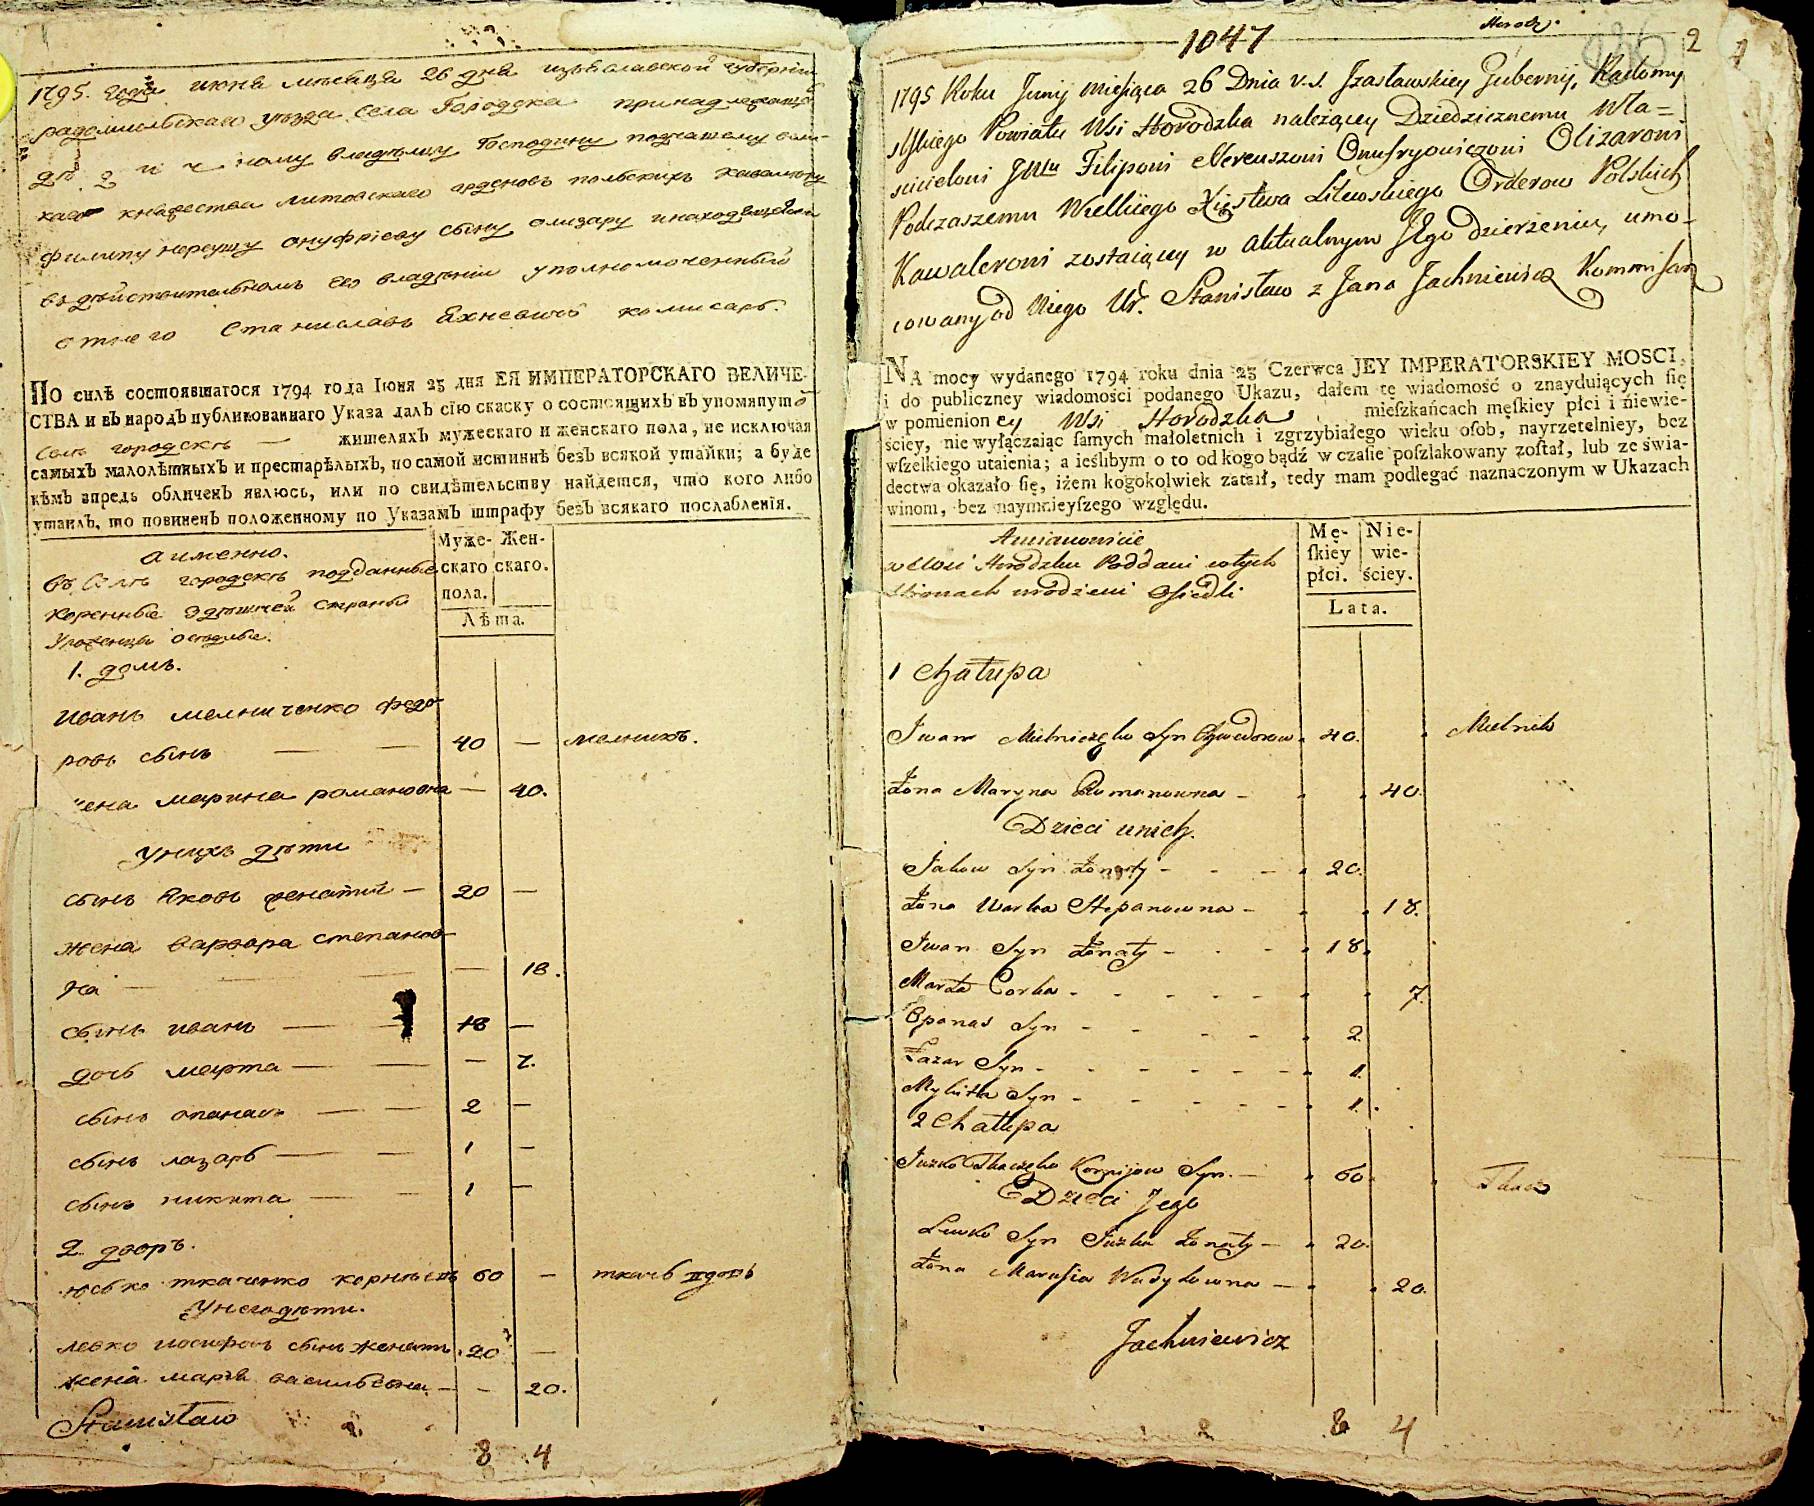 1795. года июня мѣсяца 26 дня изъяславской губерніи
радомысльскаго уѣзда села Городска принадлежащей
дѣдичному владѣльцу Господину подчашему вели-
каго княжества литовскаго орденовъ польскихъ кавалеру
филипу нереушу ануфріеву сыну олизару и находящейся
въ дѣйствительномъ его владѣніи уполномоченный
отнего Станиславъ Яхневичъ комисаръ.
По силѣ состоявшагося 1794 года Іюня 23 дня ЕЯ ИМПЕРАТОРСКАГО ВЕЛИЧЕ-
СТВА и въ народъ публикованнаго Указа далъ сію скаску о состоящихъ въ упомянуто
Селѣ городскѣ — жителяхъ мужескаго и женскаго пола, не исключая
самыхъ малолѣтныхъ и престарѣлыхъ, по самой истиннѣ безъ всякой утайки; а буде
кѣмъ впредь обличенъ явлюсь, или по свидѣтельству найдется, что кого либо
утаилъ, то повиненъ положенному по Указамъ штрафу безъ всякаго послабленія.
Муже- Жен-
скаго скаго.
пола.
Лѣта.
а именно.
въ Селѣ городскѣ подданные
коренные здѣшней страны
Уроженцы оседлые.
1. домъ.
иванъ мелниченко федо
ровъ сынъ — — 40 — мелникъ.
жена марина романовна — 40.
У нихъ дѣти
сынъ Яковъ женатий — 20 —
жена варвара степанов-
на — — — 18.
сынъ иванъ — — 18 —
дочь марта — — — 7.
сынъ опанасъ — — 2 —
сынъ лазарь — — 1 —
сынъ никита — — 1 —
2. дворъ.
юсько ткаченко корнѣевъ 60 — ткачь вдовъ
У него дѣти.
левко иосифовъ сынъ женатъ 20 —
жена марья васильевна — — 20.
Stanisław
8 4
1047
Horodz.
2
1795 Roku Juny miesiąca 26 Dnia v.s. Izasławskiey Gubernij, Radomy
slskiego Powiatu Wsi Horodzka należący Dziedzicznemu Wła=
scicielowi JWu Filipowi Nereuszowi Onufryowiczowi Olizarowi
Podczaszemu Wielkiego Xięstwa Litewskiego Orderow Polskich
Kawalerowi zostaiący w aktualnym Jego dzierżeniu, umo-
cowany od Niego Ur. Stanisław z Jana Jachniewicz Kommisarz
NA mocy wydanego 1794 roku dnia 23 Czerwca JEY IMPERATORSKIEY MOSCI,
i do publiczney wiadomości podanego Ukazu, dałem tę wiadomość o znayduiących się
w pomienioney Wsi Horodzka mieszkańcach męskiey płci i niewie-
ściey, nie wyłączaiąc samych małoletnich i zgrzybiałego wieku osob, nayrzetelniey, bez
wszelkiego utaienia; a ieślibym o to od kogo bądź w czasie poszlakowany został, lub ze świa-
dectwa okazało się, iżem kogokolwiek zataił, tedy mam podlegać naznaczonym w Ukazach
winom, bez naymnieyszego względu.
Mę- Nie-
skiey wie-
płci. ściey.
Lata.
Amianowicie
w Wsi Horodzku Poddani w tych
Stronach urodzeni Osiedli
1 Chałupa
Iwan Mielniczęko Syn Chwedorow 40. Mielnik
Żona Maryna Romanowna - 40.
Dzieci unich.
Jakow Syn Żonaty - - - 20.
Żona Warka Stepanowna - 18.
Iwan Syn Żonaty - - - 18.
Marta Corka - - - - - 7.
Opanas Syn - - - - 2.
Łazar Syn - - - - - - 1.
Mykitka Syn - - - - - 1.
2 Chałupa
Juzko Tkaczęko Kornijow Syn. — 60. Tkacz
Dzieci Jego
Lewko Syn Juzka Żonaty — 20.
Żona Marusia Wasylowna — 20.
Jachniewicz
8 4